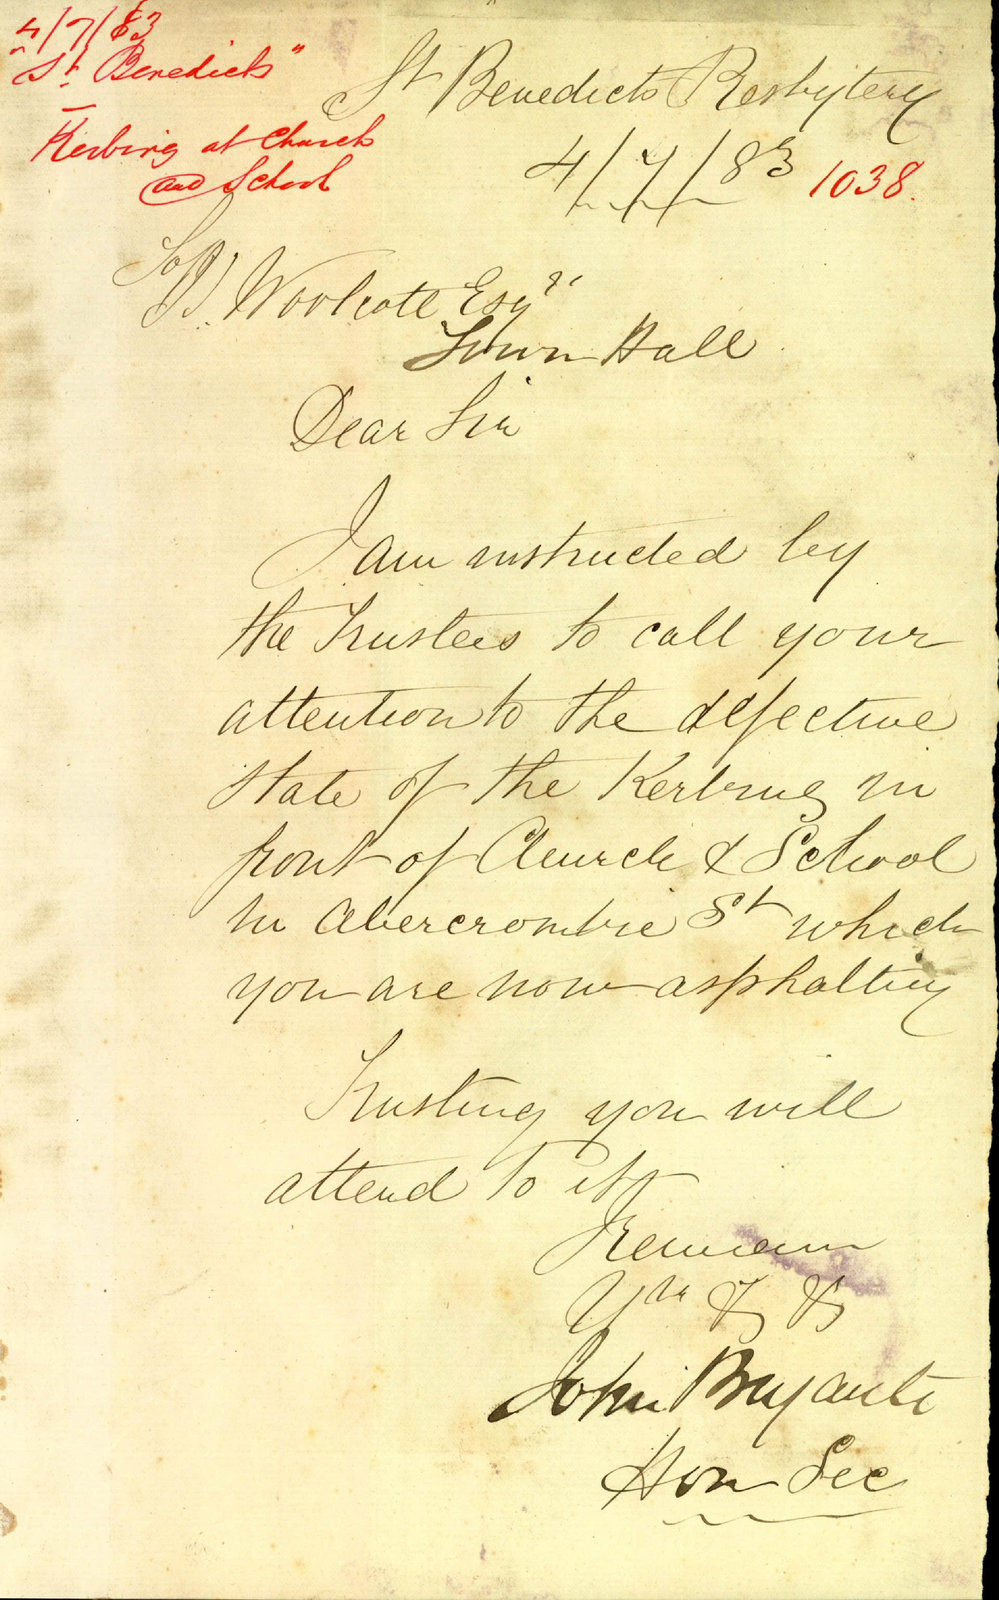 4/7/83
"St. Benedicts"
Kerbing at Church
and School
St Benedicts Presbytery
4/7/83
1038.
To
Woolcott Esqre
Town Hall
Dear Sir
I am instructed by
the Trustees to call your
attention to the defective
state of the Kerbing in
front of Church & School
in Abercrombie St which
you are now asphalting
Trusting you will
attend to it
I remain
Yrs &c &c
John Bryant
Hon Sec